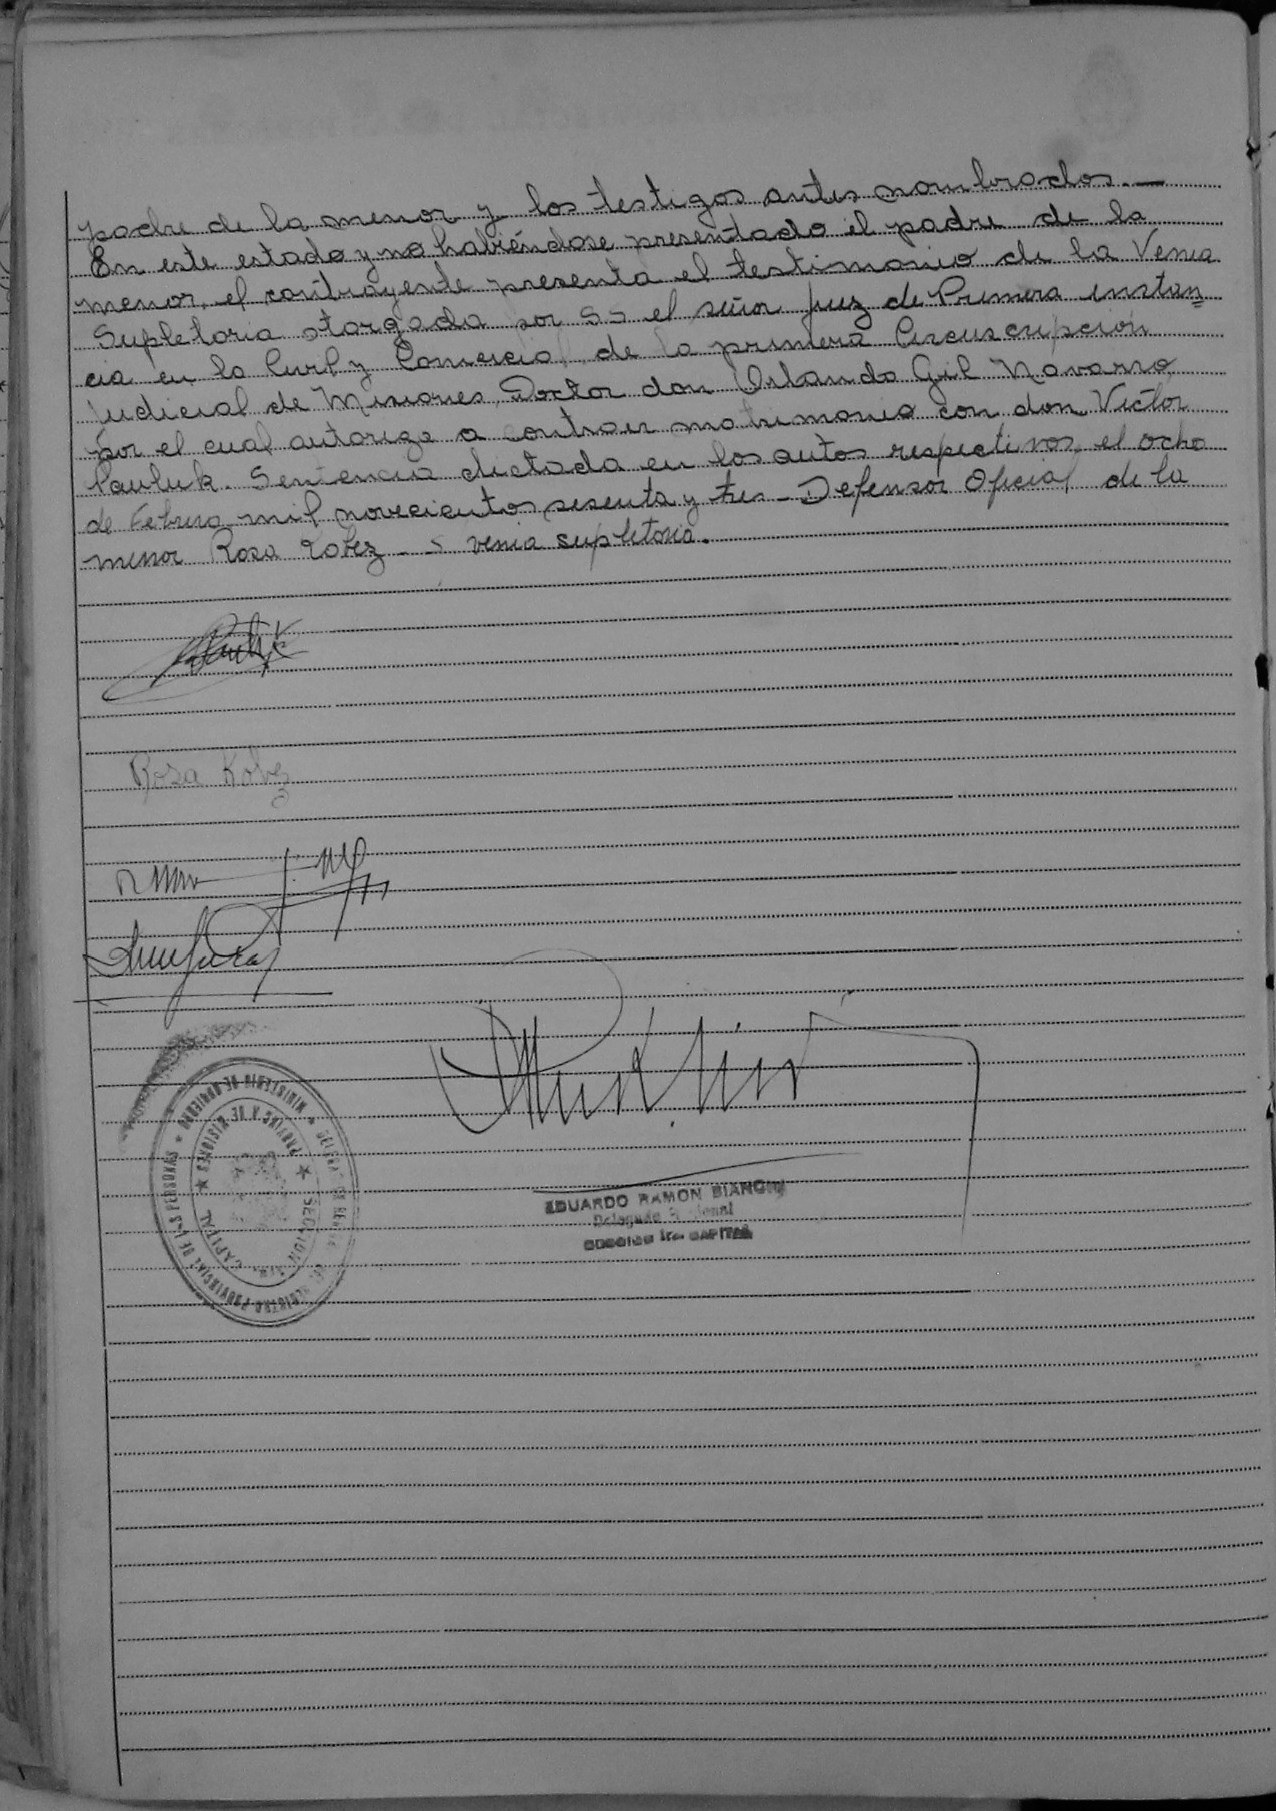 padre de la menor y los testigos antes nombrados.—
En este estado y no habiéndose presentado el padre de la
menor, el contrayente presenta el testimonio de la Venia
Supletoria otorgada por SS el señor Juez de Primera instan=
cia en lo Civil y Comercial de la primera Circunscripción
Judicial de Misiones, Doctor don Orlando Gil Navarro
por el cual autoriza a contraer matrimonio con don Víctor
Pauluk. Sentencia dictada en los autos respectivos, el ocho
de Febrero mil novecientos sesenta y tres - Defensor Oficial de la
menor Rosa Kobez - S venia supletoria.
Rosa Kobez
MINISTERIO DE GOBIERNO
REGISTRO PROVINCIAL DE LAS PERSONAS
SECCION 1ra. CAPITAL
EDUARDO RAMON BIANCHI
Delegado
SECCION 1ra CAPITAL